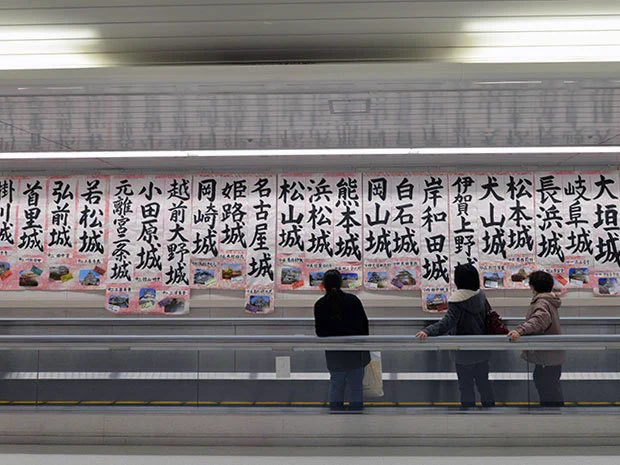 大垣城
岐阜城
長浜城
松本城
犬山城
伊賀上野城
岸和田城
白石城
岡山城
熊本城
浜松城
松山城
名古屋城
姫路城
岡崎城
越前大野城
小田原城
元離宮二条城
若松城
弘前城
首里城
掛川城